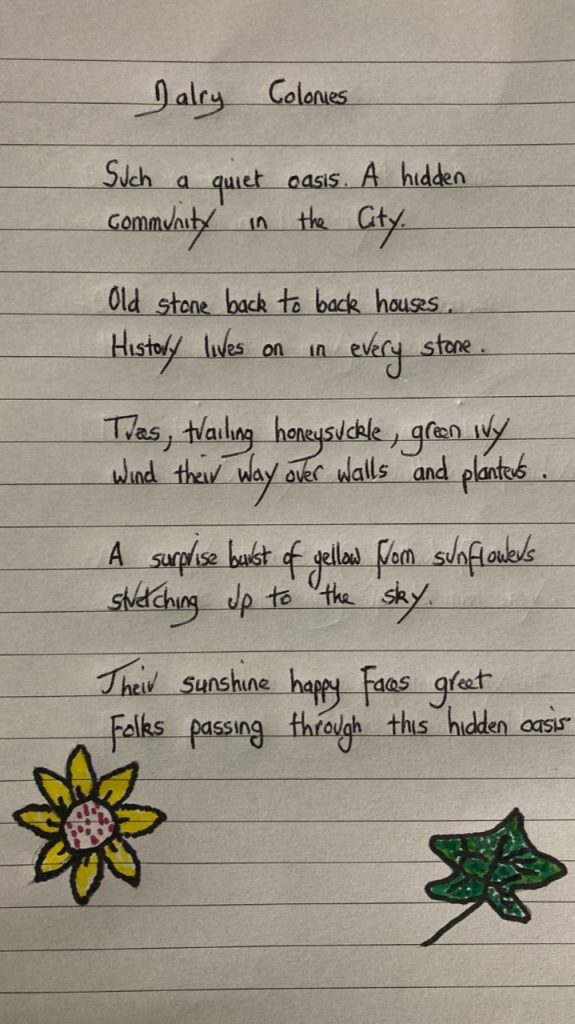 Dalry Colonies
Such a quiet oasis. A hidden
community in the City.
Old stone back to back houses.
History lives on in every stone.
Trees, trailing honeysuckle, green ivy
wind their way over walls and planters.
A surprise burst of yellow from sunflowers
stretching up to the sky.
Their sunshine happy Faces greet
Folks passing through this hidden oasis